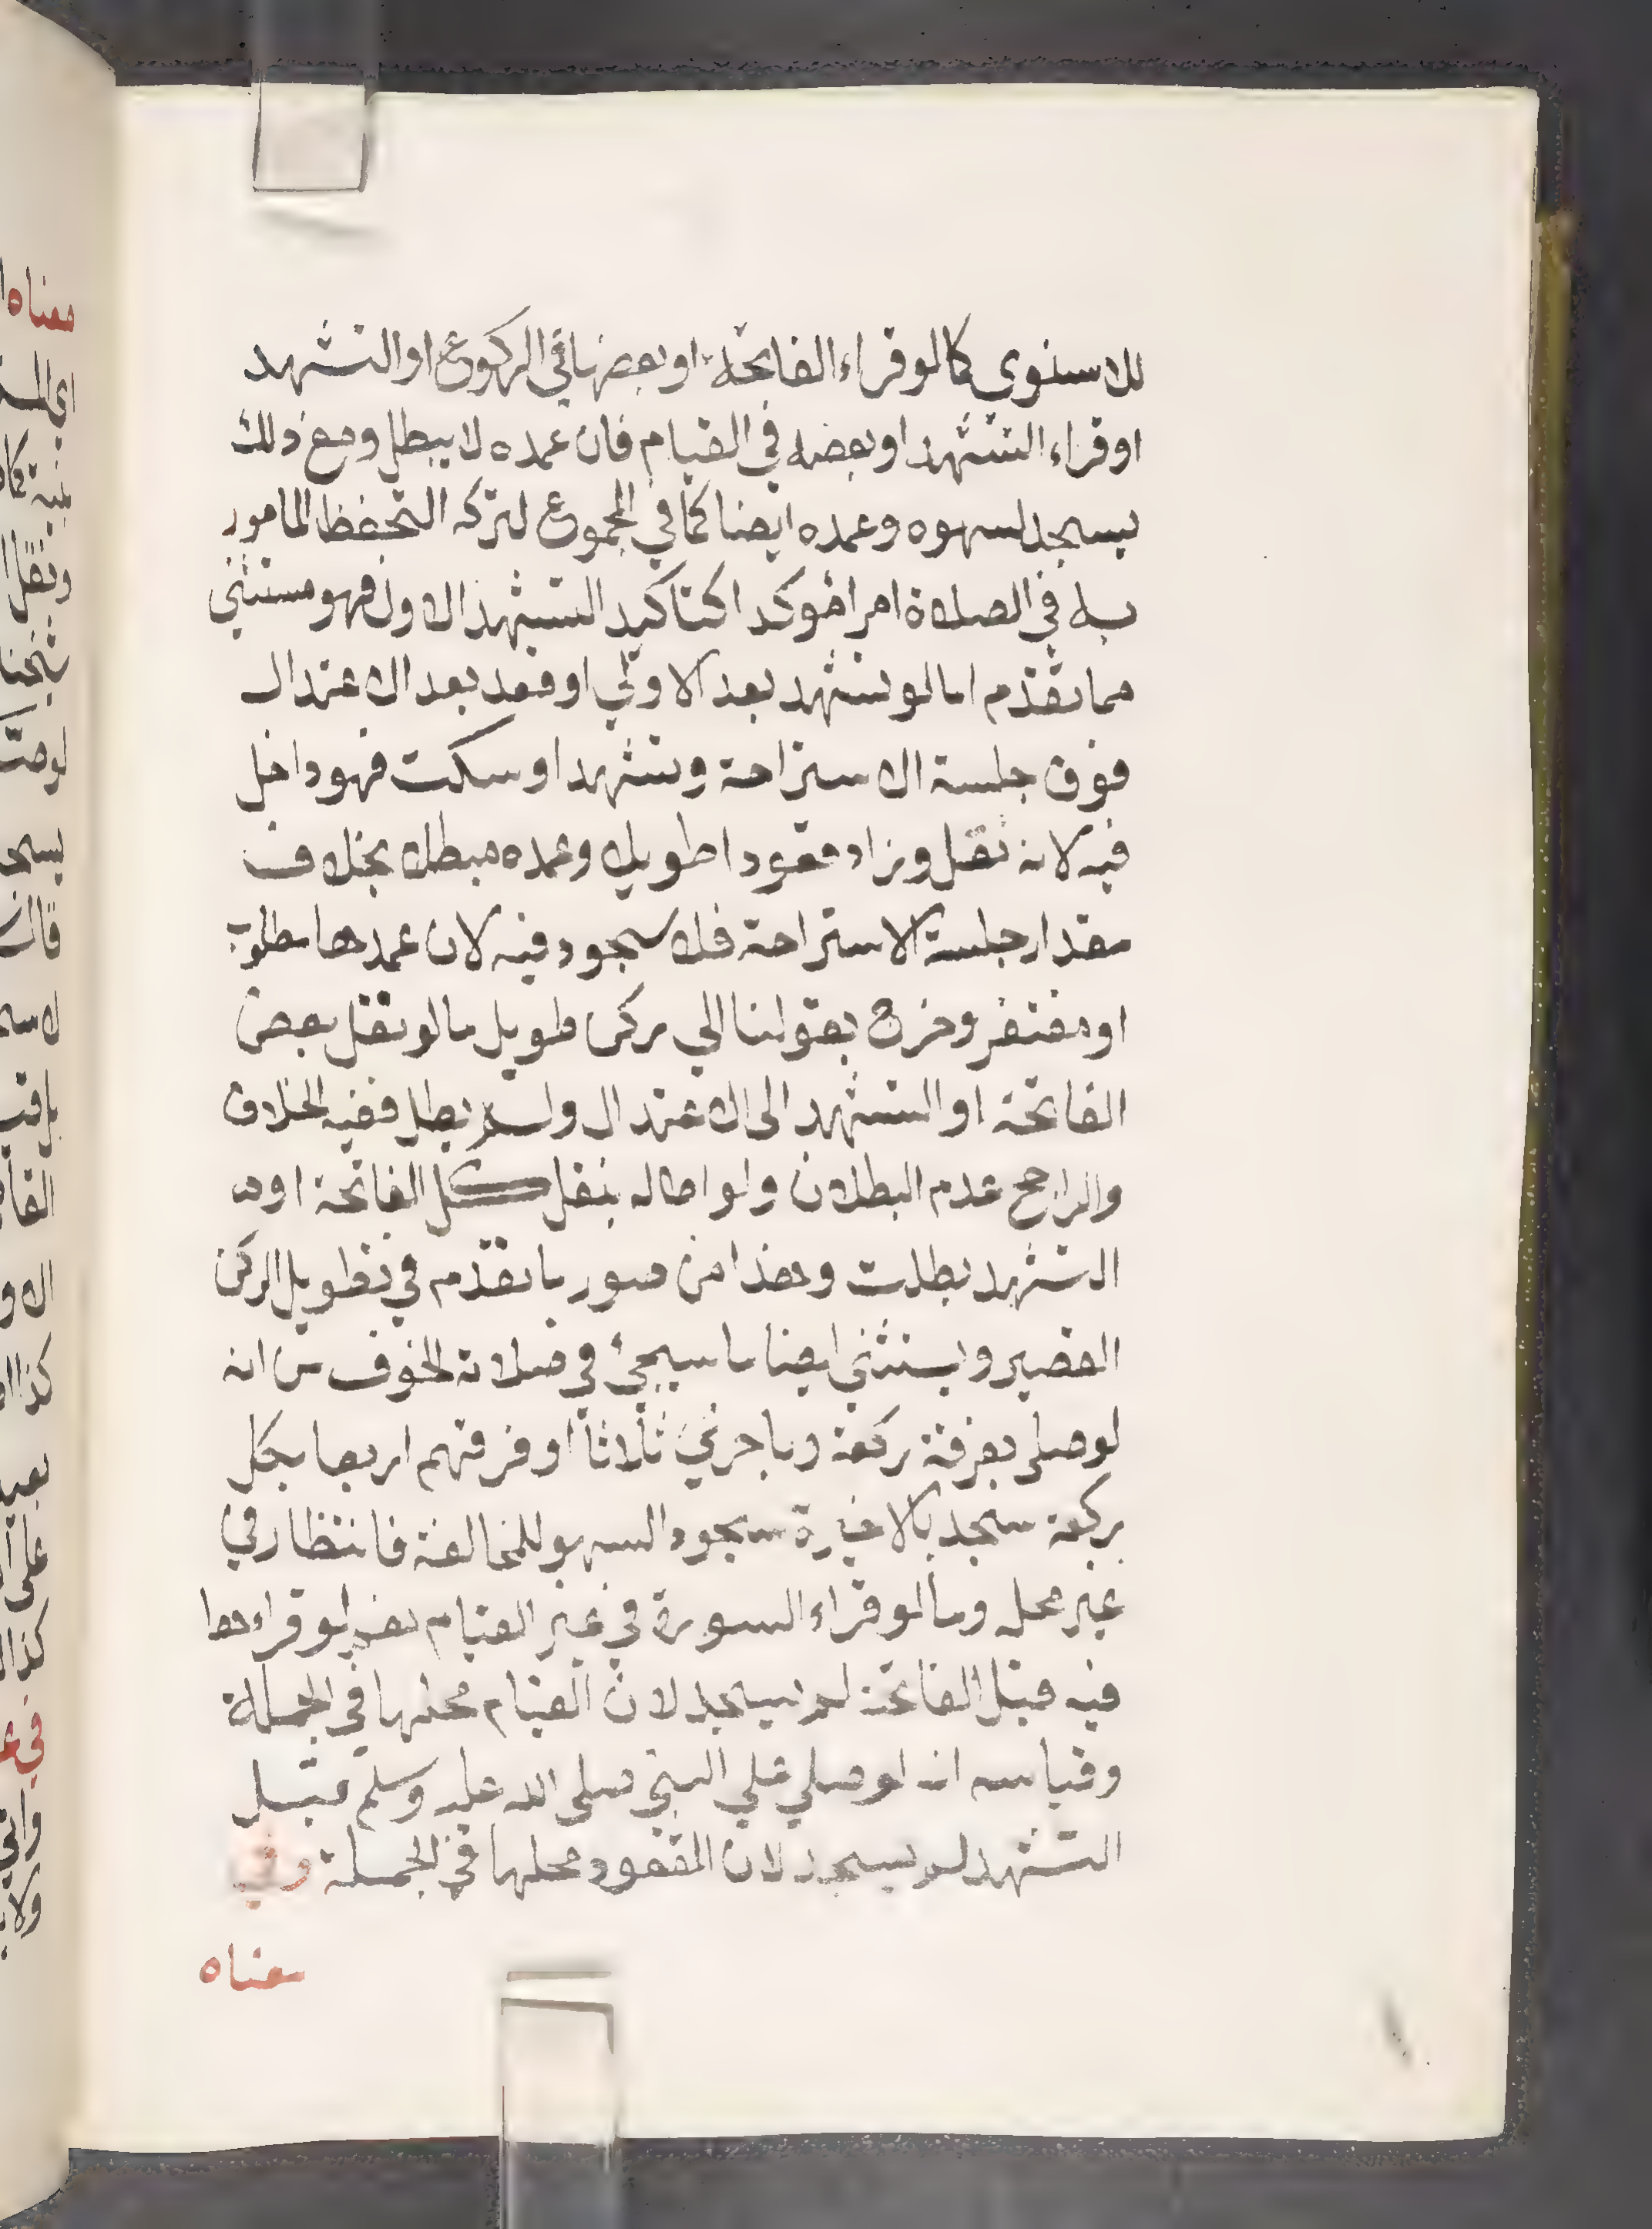 للاسنوي كما لو قراء الفاتحة او بعضها في الركوع او التشهد
او قراء التشهد او بعضه في القيام فان عمده لا يبطل ومع ذلك
يسجد لسهوه وعمده ايضا كما في المجموع لتركه التحفظ المامور
به في الصلاة امرا مؤكدا كتاكيد التشهد الاول فهو مستثني
مما تقدم اما لو تشهد بعد الاولي او قعد بعد الاعتدال
فوق جلسة الاستراحة وتشهد او سكت فهو داخل
فيه لانه نقل وزاد قعودا طويلا وعمده مبطل بخلاف
مقدار جلسة الاستراحة فلا سجود فيه لان عمدها مطلوب
او مغتفر وخرج بقولنا الي ركن طويل ما لو نقل بعض
الفاتحة او التشهد الى الاعتدال ولم يطل ففيه الخلاف
والراجح عدم البطلان ولو اطاله بنقل كل الفاتحة او
التشهد بطلت وهذا من صور ما تقدم في تطويل الركن
القصير ويستثني ايضا ما سيجئ في صلاة الخوف من انه
لو صلى بفرقة ركعة وباخري ثلاثا او فرقهم اربعا بكل
ركعة سجد بالاخيرة سجود السهو للمخالفة فانتظار في
غير محله وما لو قراء السورة في غير القيام نعم لو قراءها
فيه قبل الفاتحة لم يسجد لان القيام محلها في الجملة
وقياسه انه لو صلي علي النبي صلى الله عليه وسلم قبل
التشهد لم يسجد لان القعود محلها في الجملة وفي
معناه